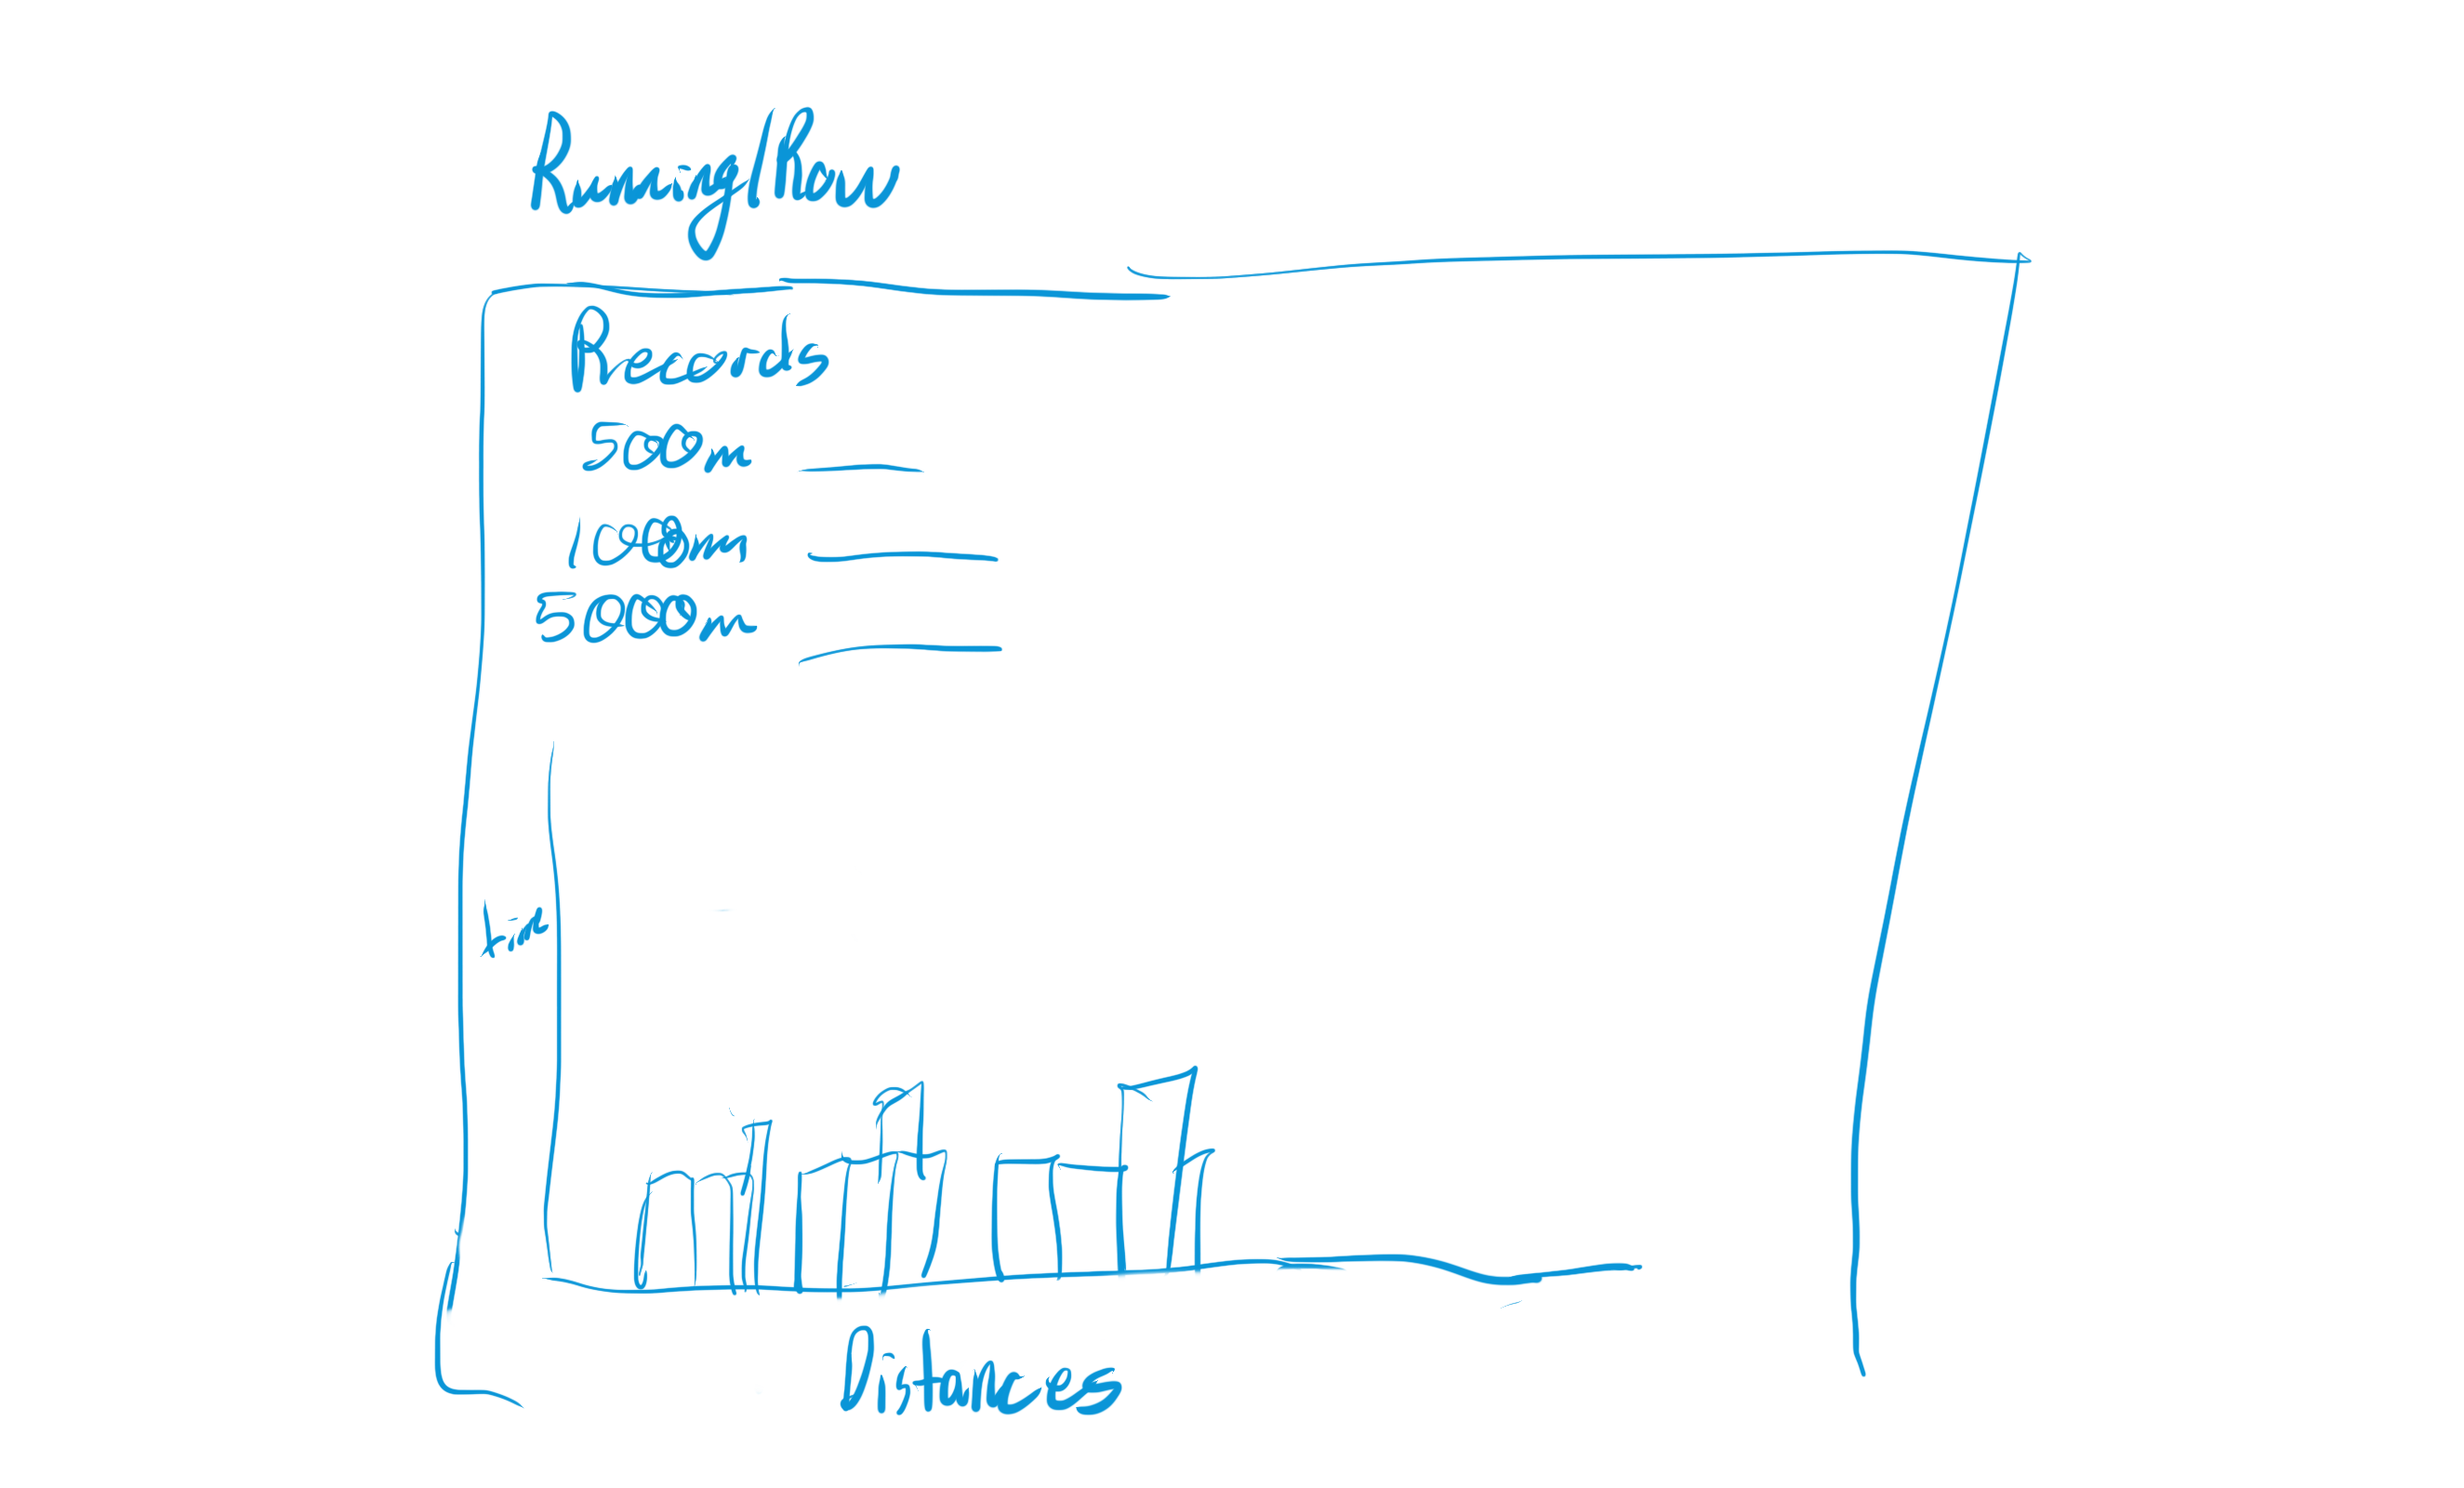 Running/Row
Records
500m
1000m
5000m
time
Distances